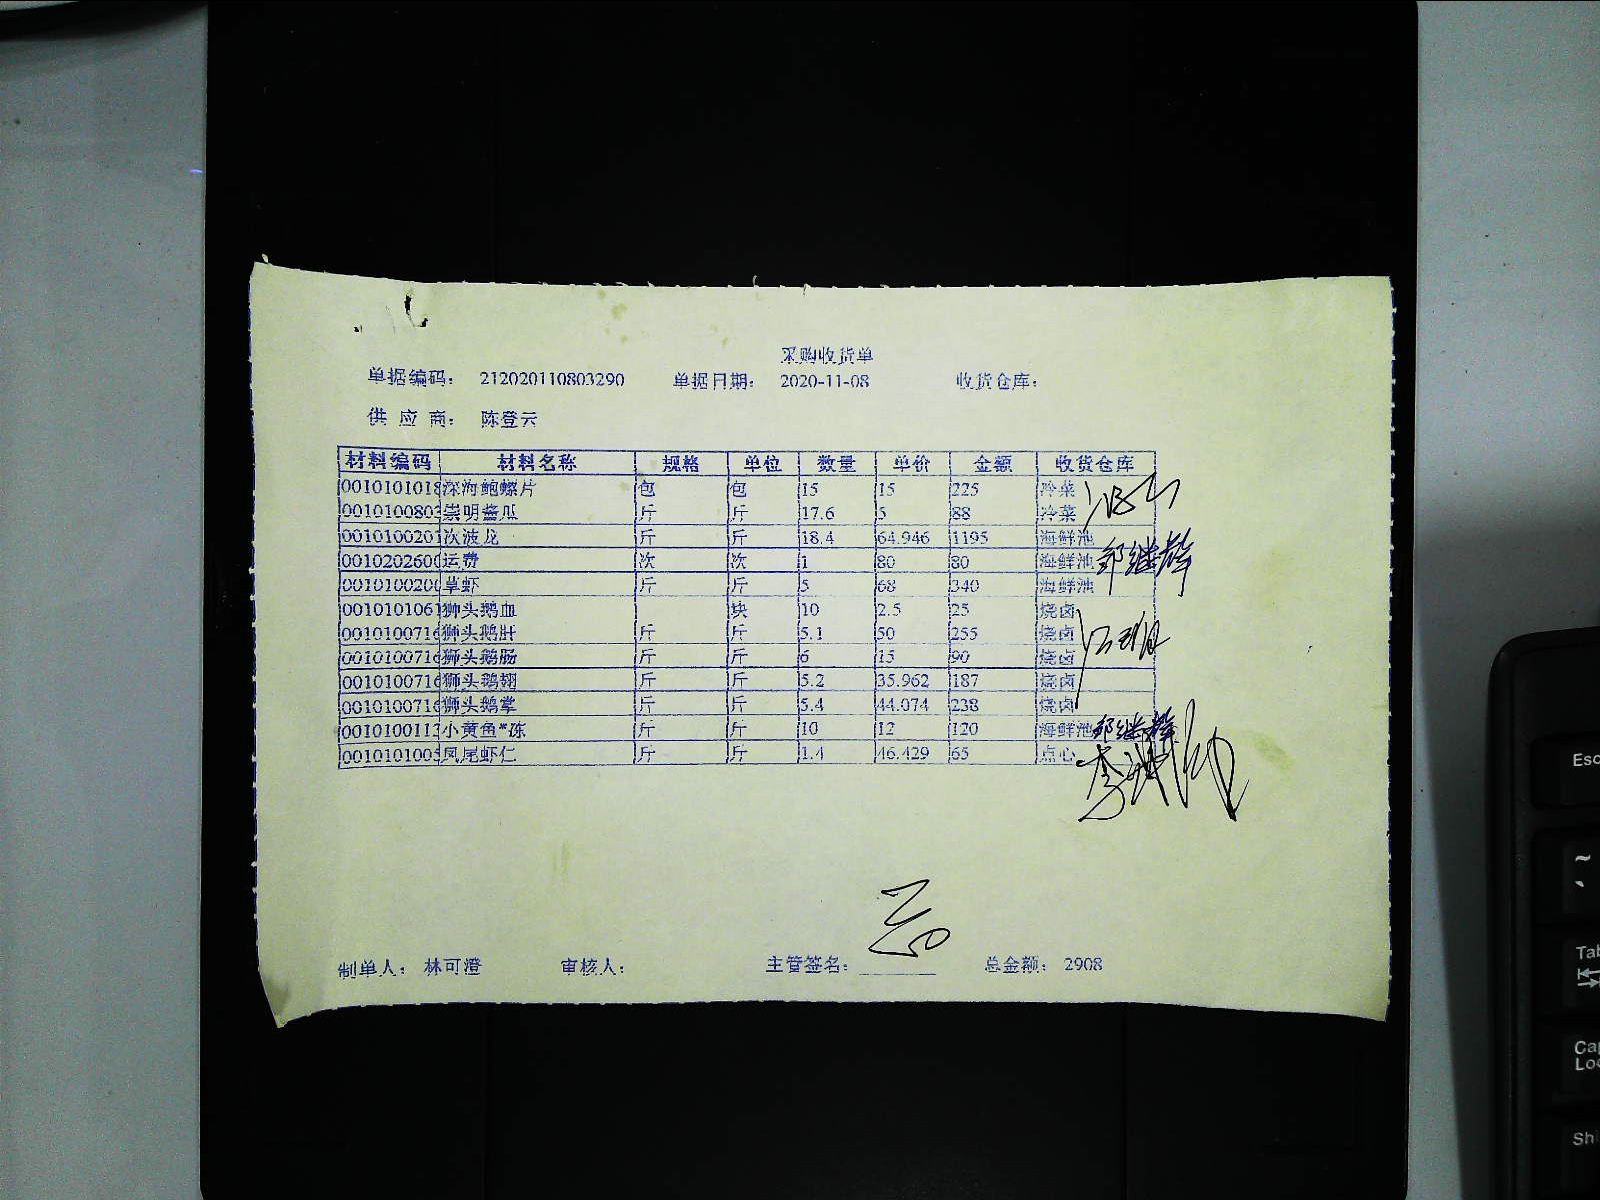 采购收货单
单据编码： 212020110803290 单据日期： 2020-11-08 收货仓库：
供 应 商： 陈登云
材料编码 材料名称 规格 单位 数量 单价 金额 收货仓库
0010101018 深海鲍螺片 包 包 15 15 225 冷菜
001010080 崇明酱瓜 斤 斤 17.6 5 88 冷菜
001010020 次波龙 斤 斤 18.4 64.946 1195 海鲜池
001020260 运费 次 次 1 80 80 海鲜池
001010020 草虾 斤 斤 5 68 340 海鲜池
001010106 狮头鹅血 块 10 2.5 25 烧卤
001010071 狮头鹅肝 斤 斤 5.1 50 255 烧卤
001010071 狮头鹅肠 斤 斤 6 15 90 烧卤
001010071 狮头鹅翅 斤 斤 5.2 35.962 187 烧卤
001010071 狮头鹅掌 斤 斤 5.4 44.074 238 烧卤
001010011 小黄鱼*冻 斤 斤 10 12 120 海鲜池
001010100 凤尾虾仁 斤 斤 1.4 46.429 65 点心
制单人： 林可澄 审核人： 主管签名： 总金额： 2908
Esc
~
Tab
Cap
Loc
Sh